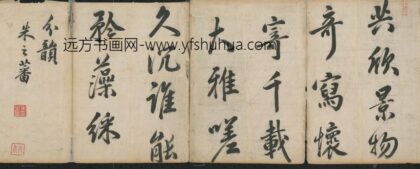 共欣景物
奇寫懷
寄千載
大雅嗟
久沉誰能
於藻綵
分韻
朱之蕃
远方书画网-www.yfshuhua.com